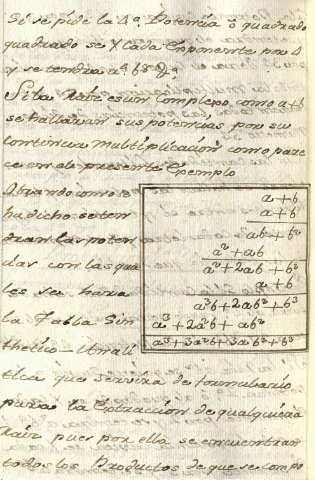 Si se pide la 4ª Potencia ô quadrado
quadrado se X cada Exponente por 4
y se tendra a⁴
Si la raiz es un Complexo, como a+b
se hallaran sus potencias por su
continua multiplicacion como pare
ce en el presente Exemplo
Obrando como se
ha dicho se ten
dran las poten
cias con las qua
les se hara
la Tabla Sin
thetico-Anali
tica que servira de formulario
para la Extraccion de qualquiera
raiz pues por ella se encuentran
todos los Productos de que se compo
a+b
a+b
ab+b²
a²+ab
a²+2ab+b²
a+b
a²b+2ab²+b³
a³+2a²b+ab²
a³+3a²b+3ab²+b³